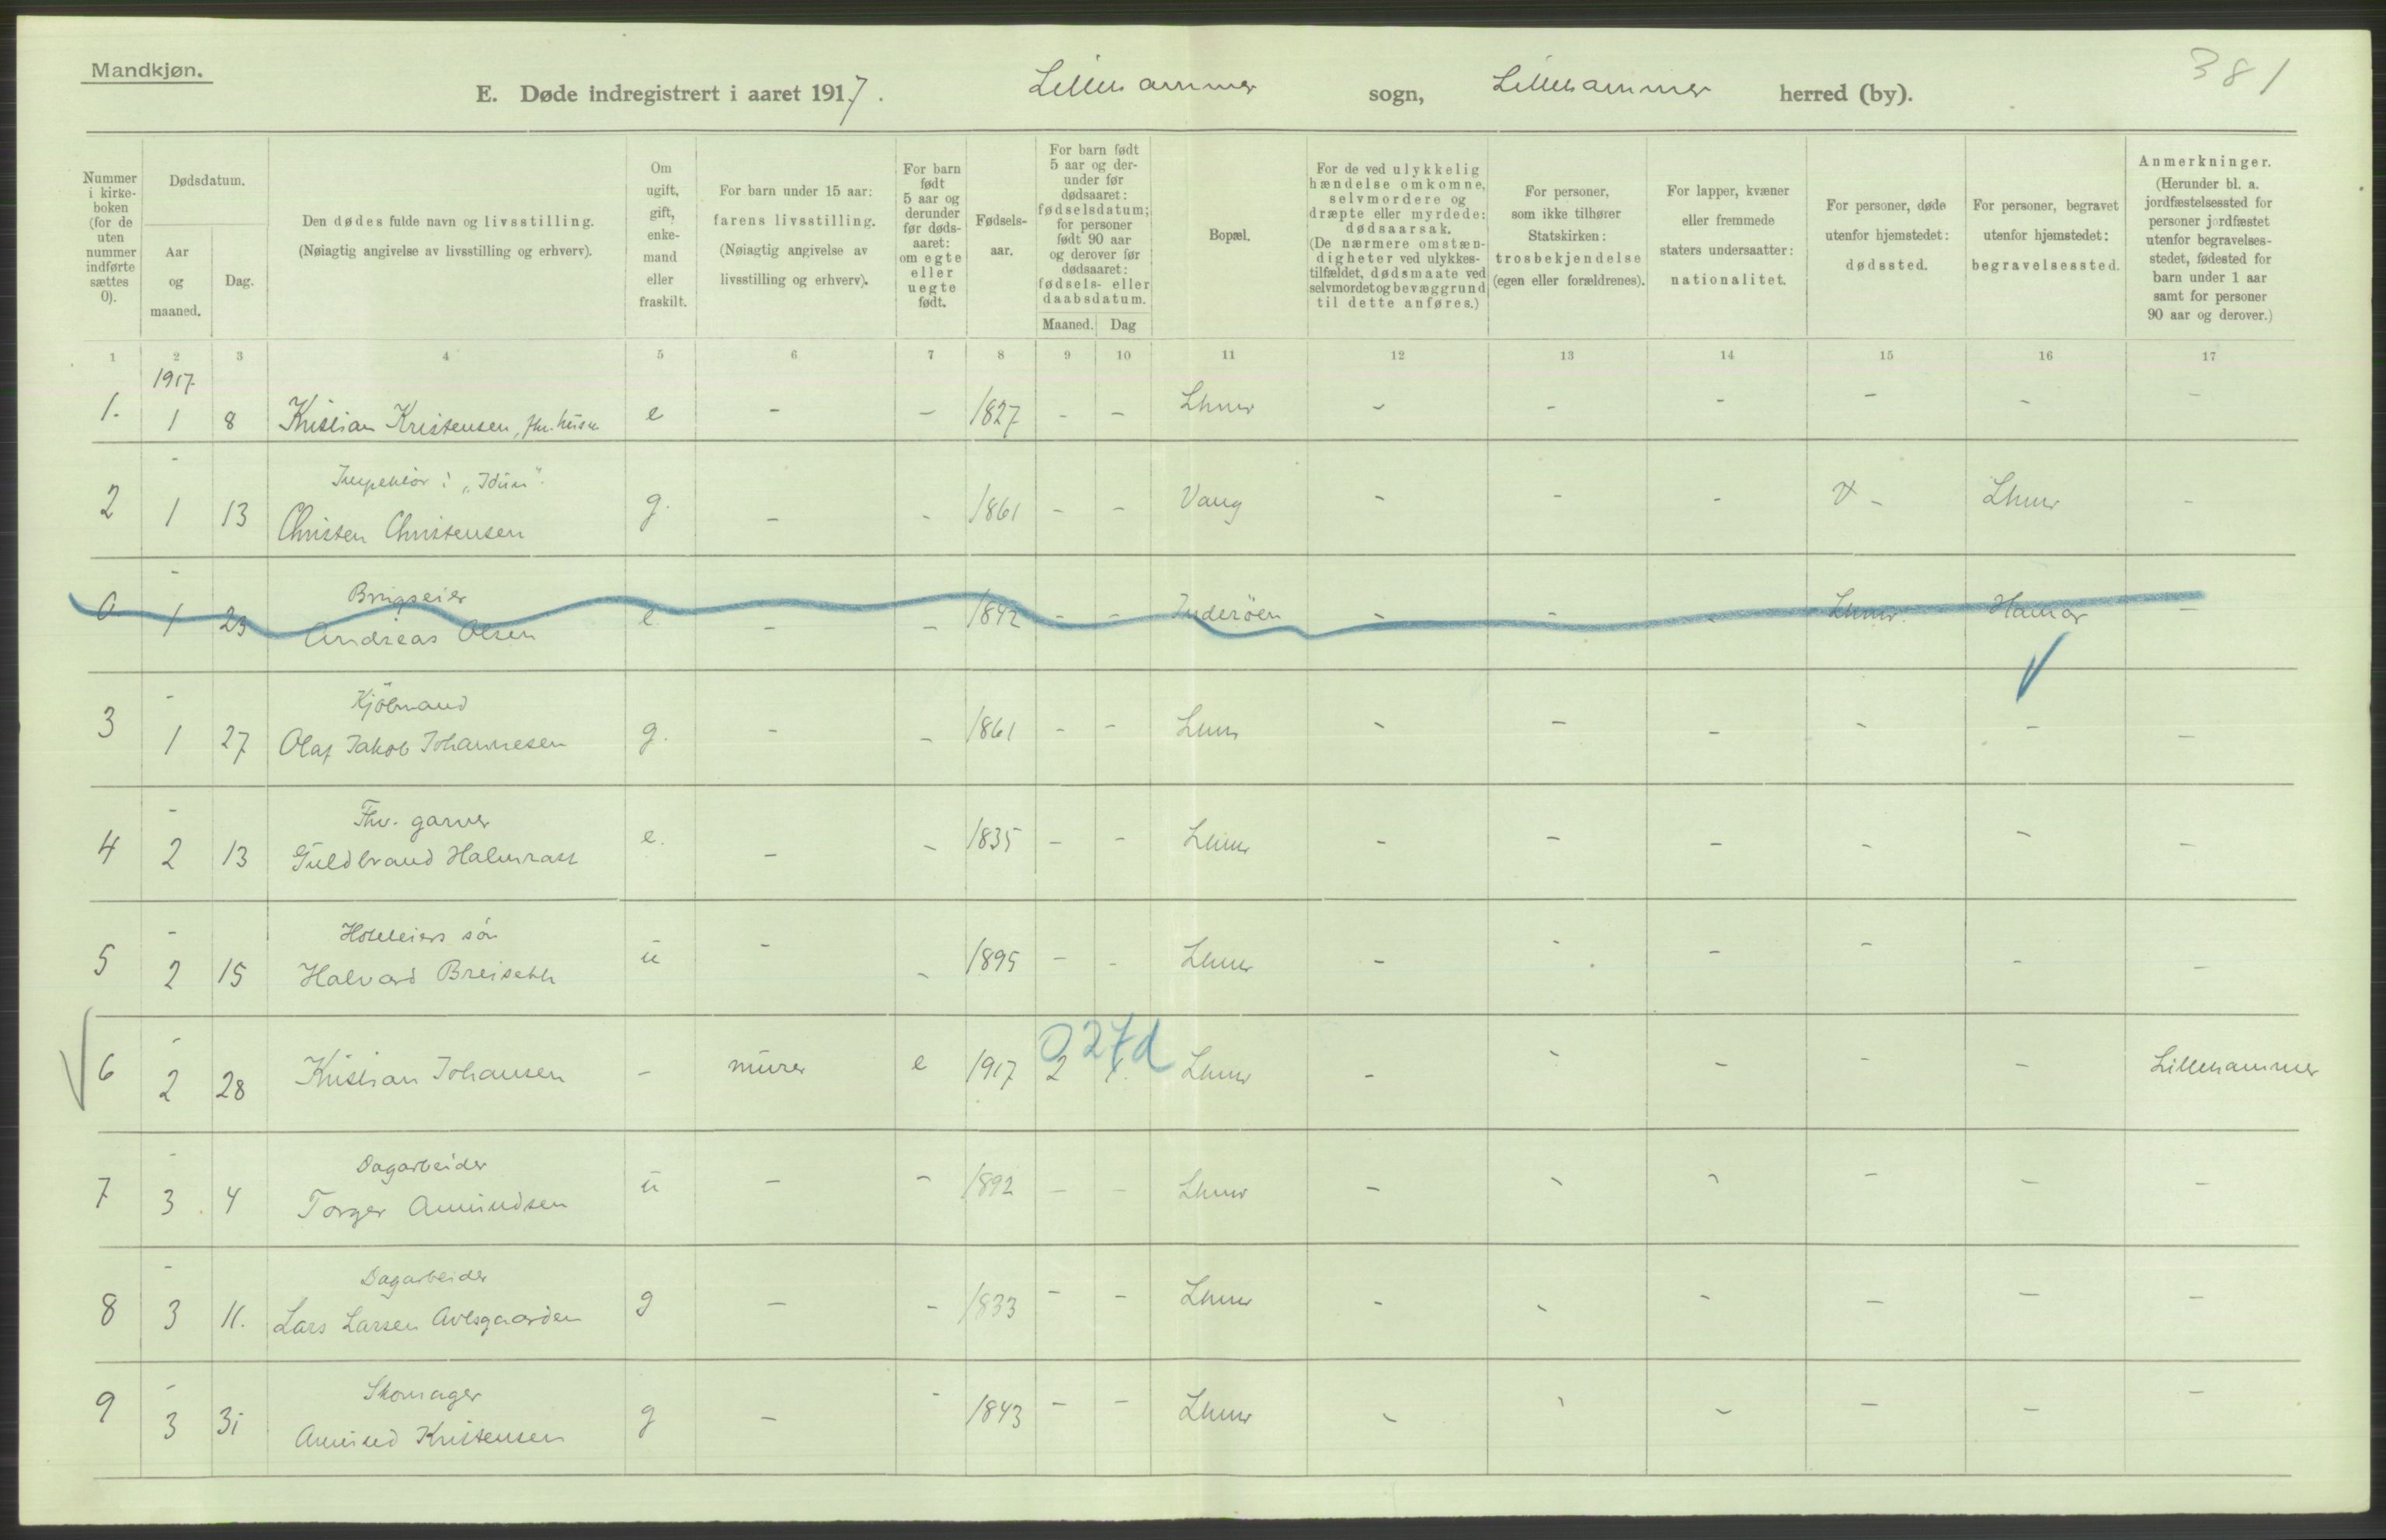 Mandkjøn.
381
E. Døde indregistrert i aaret 1917. Lillehammer sogn, Lillehammer herred (by).
Nummer i kirke- boken (for de uten nummer indførte sættes 0).
Dødsdatum.
Aar og maaned.
Dag.
Den dødes fulde navn og livsstilling.
(Nøiagtig angivelse av livsstilling og erhverv).
Om ugift, gift, enke- mand eller fraskilt.
For barn under 15 aar: farens livsstilling. (Nøiagtig angivelse av livsstilling og erhverv).
For barn født 5 aar og derunder før døds- aaret: om egte eller uegte født.
Fødsels- aar.
For barn født 5 aar og der- under før dødsaaret: fødselsdatum; for personer født 90 aar og derover før dødsaaret: fødsels- eller daabsdatum.
Maaned. Dag
Bopæl.
For de ved ulykkelig hændelse omkomne, selvmordere og dræpte eller myrdede: dødsaarsak. (De nærmere omstæn- digheter ved ulykkes- tilfældet, dødsmaate ved selvmordet og bevæggrund til dette anføres.)
For personer, som ikke tilhører Statskirken: trosbekjendelse (egen eller forældrenes).
For lapper, kvæner eller fremmede staters undersaatter: nationalitet.
For personer, døde utenfor hjemstedet: dødssted.
For personer, begravet utenfor hjemstedet: begravelsessted.
Anmerkninger. (Herunder bl. a. jordfæstelsessted for personer jordfæstet utenfor begravelses- stedet, fødested for barn under 1 aar samt for personer 90 aar og derover.)
1 2 3 4 5 6 7 8 9 10 11 12 13 14 15 16 17
1917
1. 1 8 Kristian Kristensen, fhv. husm e - - 1827 - - Lhmr - - - - - -
- Inspektør i "Idun".
2 1 13 Christen Christensen g. - - 1861 - - Vang - - - - Lhmr -
- Brugseier
0 1 23 Andreas Olsen e - - 1842 - - Inderöen - - - Lhmr. Hamar -
- Kjöbmand
3 1 27 Olaf Jakob Johannesen g. - - 1861 - - Lhmr - - - - - -
- Fhv. garver
4 2 13 Guldbrand Halmrast e. - - 1835 - - Lhmr - - - - - -
- Hotelleiers sön
5 2 15 Halvard Breiseth u - - 1895 - - Lhmr - - - - - -
- 0 27d
6 2 28 Kristian Johansen - murer e 1917 2 1. Lhmr - - - - - Lillehammer
- Dagarbeider
7 3 4 Torger Amundsen u - - 1892 - - Lhmr - - - - - -
- Dagarbeider
8 3 11. Lars Larsen Avlsgaarden g - - 1833 - - Lhmr - - - - - -
- Skomager
9 3 31 Amund Kristensen g - - 1843 - - Lhmr - - - - - -